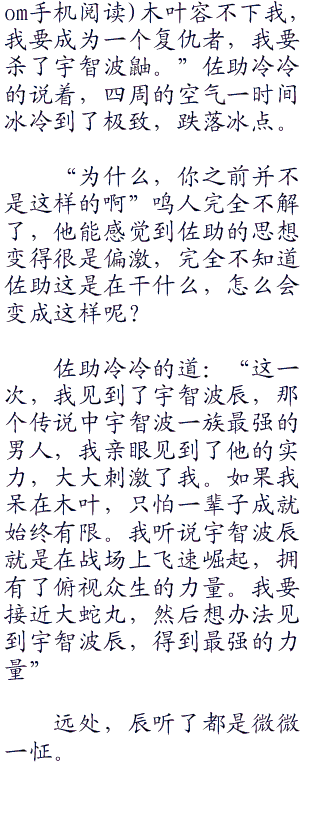 om手机阅读)木叶容不下我，
我要成为一个复仇者，我要
杀了宇智波鼬。”佐助冷冷
的说着，四周的空气一时间
冰冷到了极致，跌落冰点。
“为什么，你之前并不
是这样的啊”鸣人完全不解
了，他能感觉到佐助的思想
变得很是偏激，完全不知道
佐助这是在干什么，怎么会
变成这样呢？
佐助冷冷的道：“这一
次，我见到了宇智波辰，那
个传说中宇智波一族最强的
男人，我亲眼见到了他的实
力，大大刺激了我。如果我
呆在木叶，只怕一辈子成就
始终有限。我听说宇智波辰
就是在战场上飞速崛起，拥
有了俯视众生的力量。我要
接近大蛇丸，然后想办法见
到宇智波辰，得到最强的力
量”
远处，辰听了都是微微
一怔。